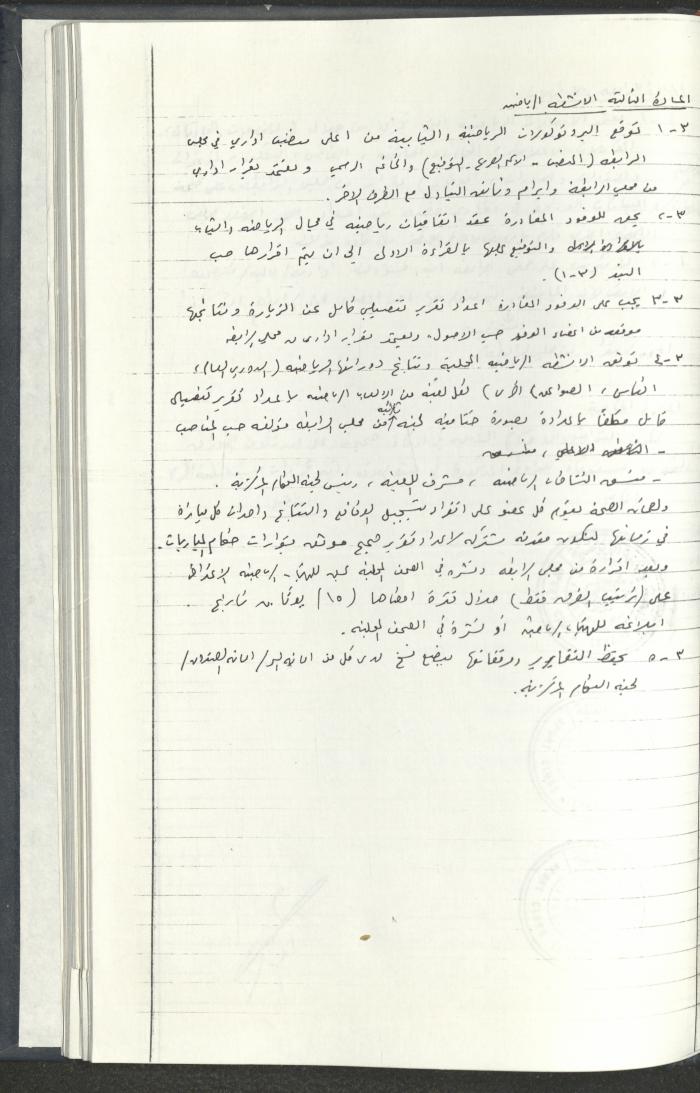 المادة الثالثة الانشطة الرياضية
٣-١ توقع البروتوكولات الرياضية والشبابية من اعلى منصب اداري في مجلس
الرابطة (المنصب - الاسم الصريح - التوقيع) والخاتم الرسمي وتعتمد بقرار اداري
من مجلس الرابطة وابرام وثائق التبادل مع الطرف الاخر.
٣-٢ يحق للوفود المغادرة عقد اتفاقيات رياضية في مجال الرياضة والشباب
والتوقيع عليها بالقراءة الاولى الى ان يتم اقرارها حسب
البند (٣-١).
٣-٣ يجب على الوفود المغادرة اعداد تقرير تفصيلي كامل عن الزيارة ونتائجها
موقعة من اعضاء الوفد حسب الاصول، ويعتمد بقرار اداري من مجلس الرابطة
٣-٤ توثق الانشطة الرياضية المحلية ونتائج دوراتها الرياضية (الدوري العام،
الكأس، ) لكل لعبة من الالعاب الرياضية باعداد تقرير تفصيلي
كامل مكلفاً باعداده بصورة ختامية لجنة ثلاثية من مجلس الرابطة مؤلفة حسب المناصب
-
- منسق النشاطات الرياضية، مشرف اللعبة، رئيس لجنة الحكام المركزية.
ولضمان الصحة يقوم كل عضو على انفراد بتسجيل الوقائع والنتائج واحداث كل مباراة
في زمانها لتكون مقدمة مشتركة لاعداد تقرير صحيح موثق بقرارات حكام المباريات.
وبعد اقراره من مجلس الرابطة ونشره في الصحف المحلية يحق للهيئات الرياضية الاعتراض
على (ترتيب الفرق فقط) خلال فترة اقصاها (١٥) يوماً من تاريخ
ابلاغه للهيئات الرياضية أو نشره في الصحف المحلية.
٣-٥ تحفظ التقارير ومرفقاتها ببضع نسخ لدى كل من امانة السر/امانة الصندوق/
لجنة الحكام المركزية.